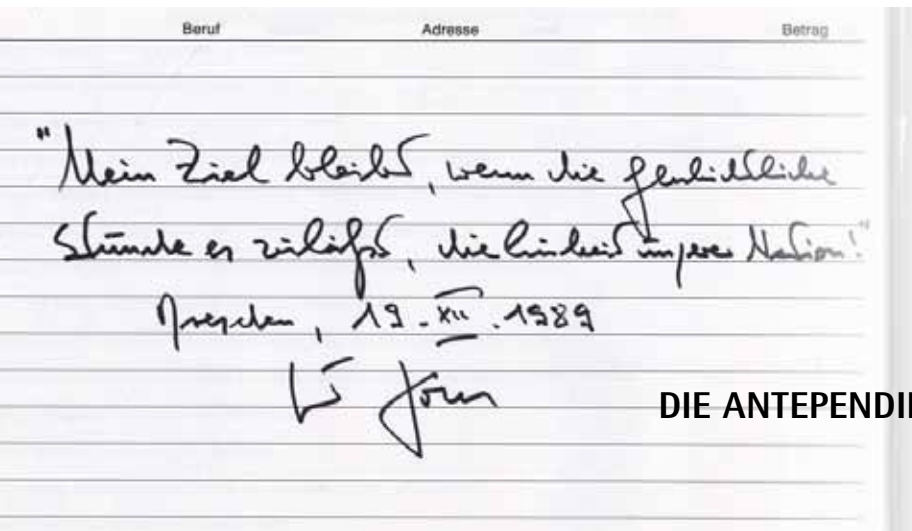 Beruf Adresse Betrag
"Mein Ziel bleibt, wenn die geschichtliche
Stunde es zuläßt, die Einheit unserer Nation!"
Dresden, 19. XII. 1989
DIE ANTEPENDI